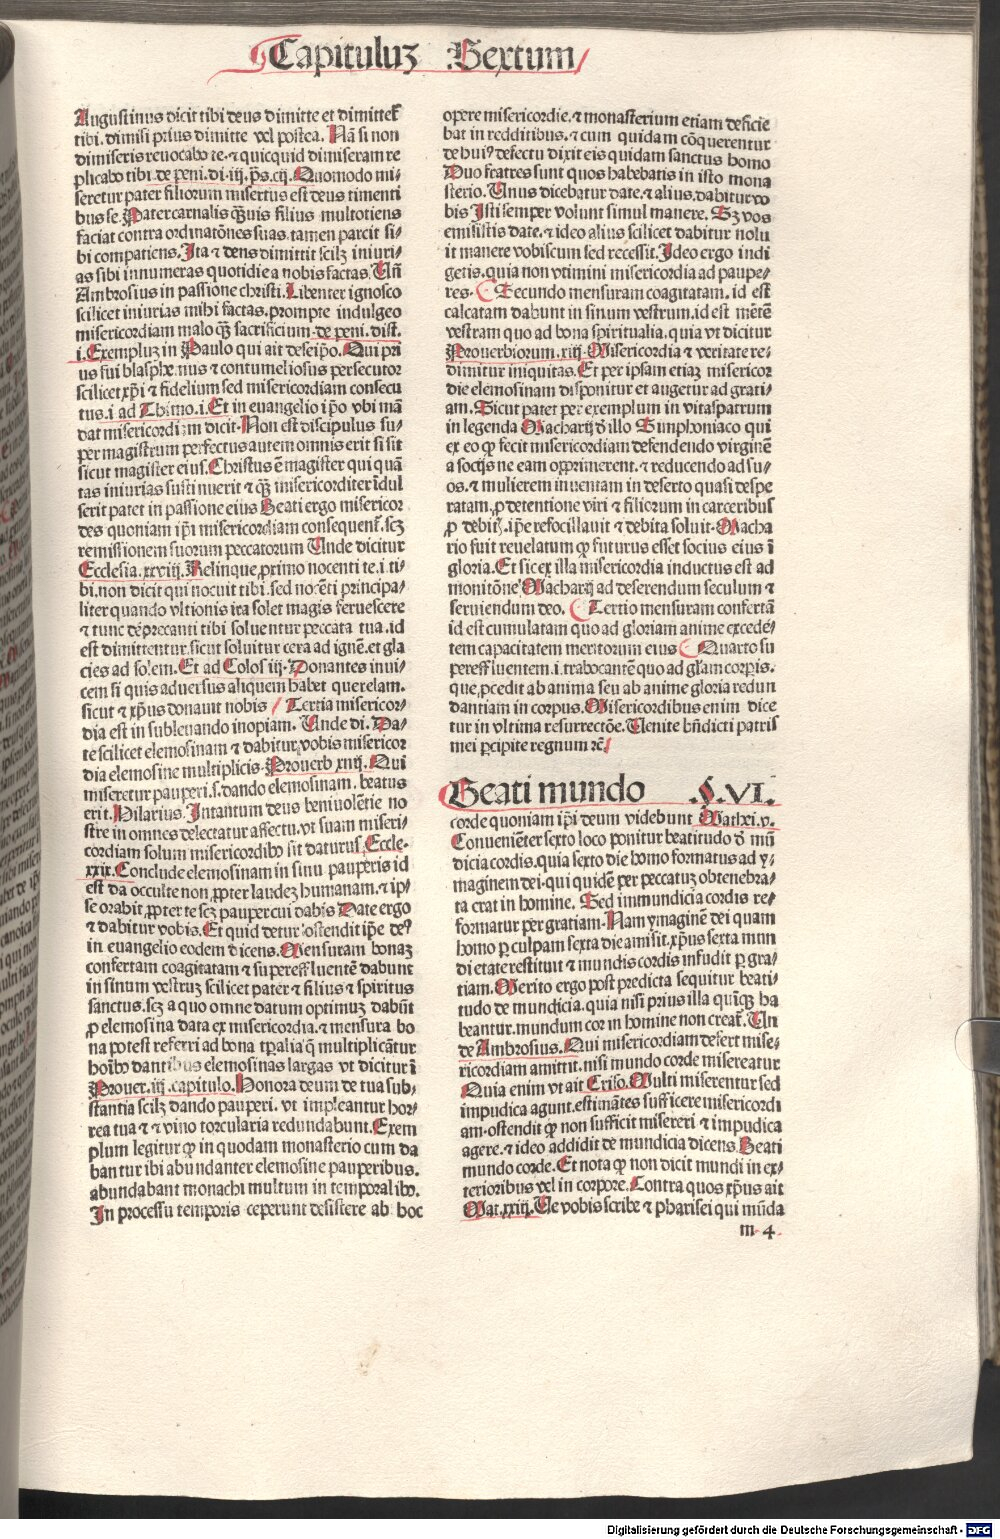 Capituluz Sextum
Augustinus dicit tibi deus dimitte et dimittet᷑
tibi. dimisi prius dimitte vel postea. Nā si non
dimiseris reuocabo te. ⁊ quicquid dimiseram re
plicabo tibi de peni. di. iij. ps. cij. Quomodo mi-
seretur pater filiorum misertus est deus timenti
bus se. Pater carnalis qͣuis filius multotiens
faciat contra ordinatōnes suas. tamen parcit si-
bi compatiens. Ita ⁊ deus dimittit scilz iniuri-
as sibi innumeras quotidie a nobis factas. Un̄
Ambrosius in passione christi. Libenter ignosco
scilicet iniurias mihi factas. prompte indulgeo
misericordiam malo qͣ sacrificium. de peni. dist.
i. Exempluz in Paulo qui ait de seip̄o. Qui pri
us fui blasphemus ⁊ contumeliosus persecutor
scilicet xp̄i ⁊ fidelium sed misericordiam consecu
tus. i ad Thimo. i. Et in euangelio ip̄o vbi mā
dat misericordiam dicit. Non est discipulus su-
per magistrum perfectus autem omnis erit si sit
sicut magister eius. Christus ē magister qui quā
tas iniurias sustinuerit ⁊ qͣ misericorditer īdul
serit patet in passione eius Beati ergo misericor
des quoniam ip̄i misericordiam consequent᷑. scz
remissionem suorum peccatorum Unde dicitur
Ecclesia. xxviij. Relinque proximo nocenti te. i ti-
bi. non dicit qui nocuit tibi. sed nocēti principa-
liter quando vltionis ira solet magis feruescere
⁊ tunc deprecanti tibi soluentur peccata tua. id
est dimittentur. sicut soluitur cera ad ignē. et gla
cies ad solem. Et ad Colos iij. Donantes inui-
cem si quis aduersus aliquem habet querelam.
sicut ⁊ xp̄us donauit nobis Tertia misericor-
dia est in subleuando inopiam. Unde di. Da-
te scilicet elemosinam ⁊ dabitur vobis misericor
dia elemosine multiplicis. Prouerb xiiij. Qui
miseretur pauperi. s. dando elemosinam. beatus
erit. Hilarius. Intantum deus beniuolētie no
stre in omnes delectatur affectu. vt suam miseri-
cordiam solum misericordibꝰ sit daturus. Eccle.
xxix. Conclude elemosinam in sinu pauperis id
est da occulte non propter laudez humanam. ⁊ ip-
se orabit propter te scz pauper cui dabis Date ergo
⁊ dabitur vobis. Et quid detur ostendit ip̄e deꝰ
in euangelio eodem dicens. Mensuram bonaz
confertam coagitatam ⁊ supereffluentē dabunt
in sinum vestruz scilicet pater ⁊ filius ⁊ spiritus
sanctus. scz a quo omne datum optimuz dabūt
ꝓ elemosina data ex misericordia. ⁊ mensura bo
na potest referri ad bona tp̄alia q̄ multiplicātur
hoībꝰ dantibus elemosinas largas vt dicitur ī
Prouer. iij. capitulo. Honora deum de tua sub-
stantia scilz dando pauperi. vt impleantur hor-
rea tua ⁊ ⁊ vino torcularia redundabunt. Exem
plum legitur ꝙ in quodam monasterio cum da
bantur ibi abundanter elemosine pauperibus.
abundabant monachi multum in temporalibꝰ.
In processu temporis ceperunt desistere ab hoc
opere misericordie. ⁊ monasterium etiam deficie
bat in redditibus. ⁊ cum quidam cōquerentur
de huiꝰ defectu dixit eis quidam sanctus homo
Duo fratres sunt quos habebatis in isto mona
sterio. Unus dicebatur date. ⁊ alius. dabitur vo
bis Isti semper volunt simul manere. Sz vos
emisistis date. ⁊ ideo alius scilicet dabitur nolu
it manere vobiscum sed recessit. Ideo ergo indi
getis. quia non vtimini misericordia ad paupe-
res. Secundo mensuram coagitatam. id est
calcatam dabunt in sinum vestrum. id est mētem
vestram quo ad bona spiritualia. quia vt dicitur
Prouerbiorum. xiij. Misericordia ⁊ veritate re-
dimitur iniquitas. Et per ipsam etiaz misericor
die elemosinam disponitur et augetur ad grati-
am. Sicut patet per exemplum in vitaspatrum
in legenda Macharij d̄ illo Simphoniaco qui
ex eo ꝙ fecit misericordiam defendendo virginē
a socijs ne eam opprimerent. ⁊ reducendo ad su-
os. ⁊ mulierem inuentam in deserto quasi despe
ratam. ꝓ detentione viri ⁊ filiorum in carceribus
ꝓ debit. ip̄e refocillauit ⁊ debita soluit. Macha
rio fuit reuelatum ꝙ futurus esset socius eius ī
gloria. Et sic ex illa misericordia inductus est ad
monitōne Macharij ad deserendum seculum ⁊
seruiendum deo. Tertio mensuram confertā
id est cumulatam quo ad gloriam anime excedē-
tem capacitatem meritorum eius Quarto su
pereffluentem. i. trabocantē quo ad gl̄am corpis.
que ꝓcedit ab anima seu ab anime gloria redun
dantiam in corpus. Misericordibus enim dice
tur in vltima resurrectōe. Uenite bn̄dicti patris
mei percipite regnum rē
Beati mundo .§. VI.
corde quoniam ip̄i deum videbunt Mathei. v.
Conueniēter sexto loco ponitur beatitudo d̄ mū
dicia cordis. quia sexto die homo formatus ad y-
maginem dei. qui quidē per peccatuz obtenebra-
ta erat in homine. Sed immundicia cordis re-
formatur per gratiam. Nam ymaginē dei quam
homo per culpam sexta die amisit. xp̄us sexta mun
di etate restituit ⁊ mundis cordis infudit per gra-
tiam. Merito ergo post predicta sequitur beati-
tudo de mundicia. quia nisi prius illa quīq ha
beantur. mundum cor in homine non creat᷑. Un
de Ambrosius. Qui misericordiam defert mise-
ricordiam amittit. nisi mundo corde misereatur
Quia enim vt ait Criso. Multi miserentur sed
impudica agunt. estimātes sufficere misericordi
am. ostendit ꝙ non sufficit misereri ⁊ impudica
agere. ⁊ ideo addidit de mundicia dicens. Beati
mundo corde. Et nota ꝙ non dicit mundi in ex-
terioribus vel in corpore. Contra quos xp̄us ait
Mat. xxiij. Ue vobis scribe ⁊ pharisei qui mūda
m 4
Digitalisierung gefördert durch die Deutsche Forschungsgemeinschaft - DFG